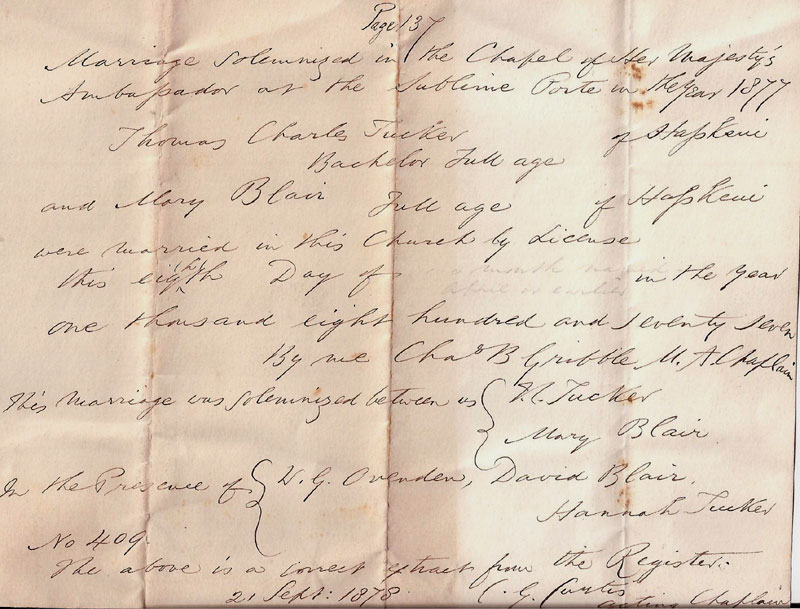 Page 137
Marriage solemnized in the Chapel of Her Majesty's
Ambassador at the Sublime Porte in the Year 1877
Thomas Charles Tucker of Hasskeui
Bachelor Full age
and Mary Blair Full age of Hasskeui
were married in this Church by License
this eighth Day of in the year
one thousand eight hundred and seventy seven
By me Chas B Gribble M. A. Chaplain
This Marriage was solemnized between us { Tucker
Mary Blair
In the Presence of { W. G. Ovenden, David Blair,
Hannah Tucker
No 409.
The above is a correct extract from the Register.
21 Sept: 1878. C. G. Curtis
acting Chaplain